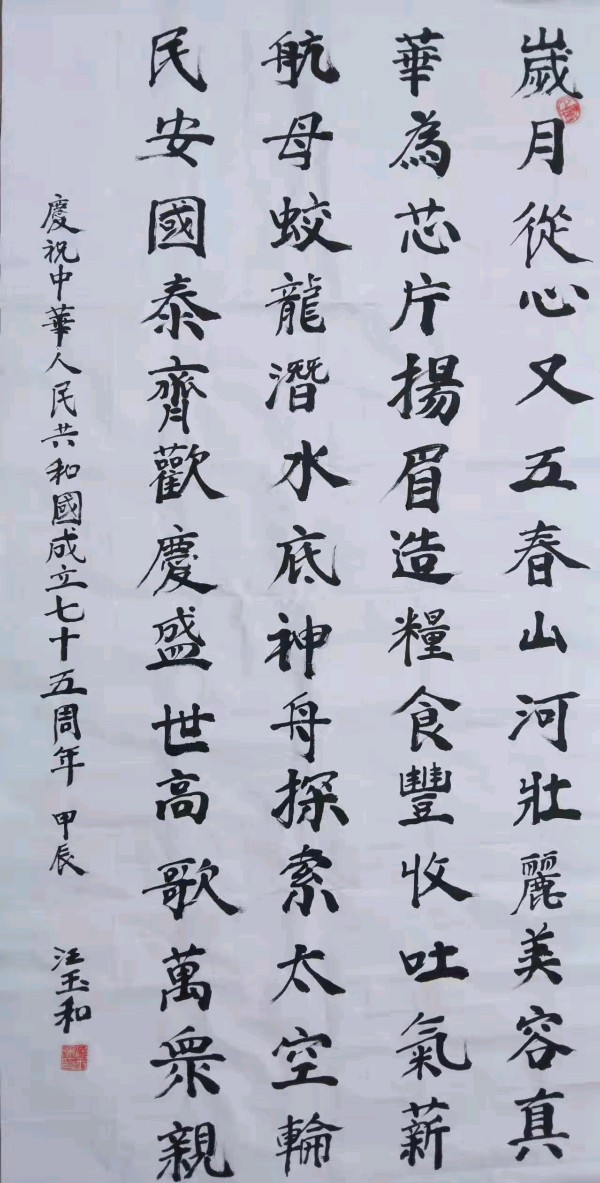 歲月從心又五春山河壯麗美容真
華為芯片揚眉造糧食豐收吐氣薪
航母蛟龍潛水底神舟探索太空輪
民安國泰齊歡慶盛世高歌萬眾親
慶祝中華人民共和國成立七十五周年 甲辰
汪玉和